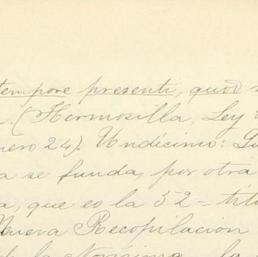 tempore presenti, quod
(Hermosilla, Ley
nero 24). Undécimo:
a se funda, por otra
a, que es la 52 = tit
Nueva Recopilación
de la Novísima, la